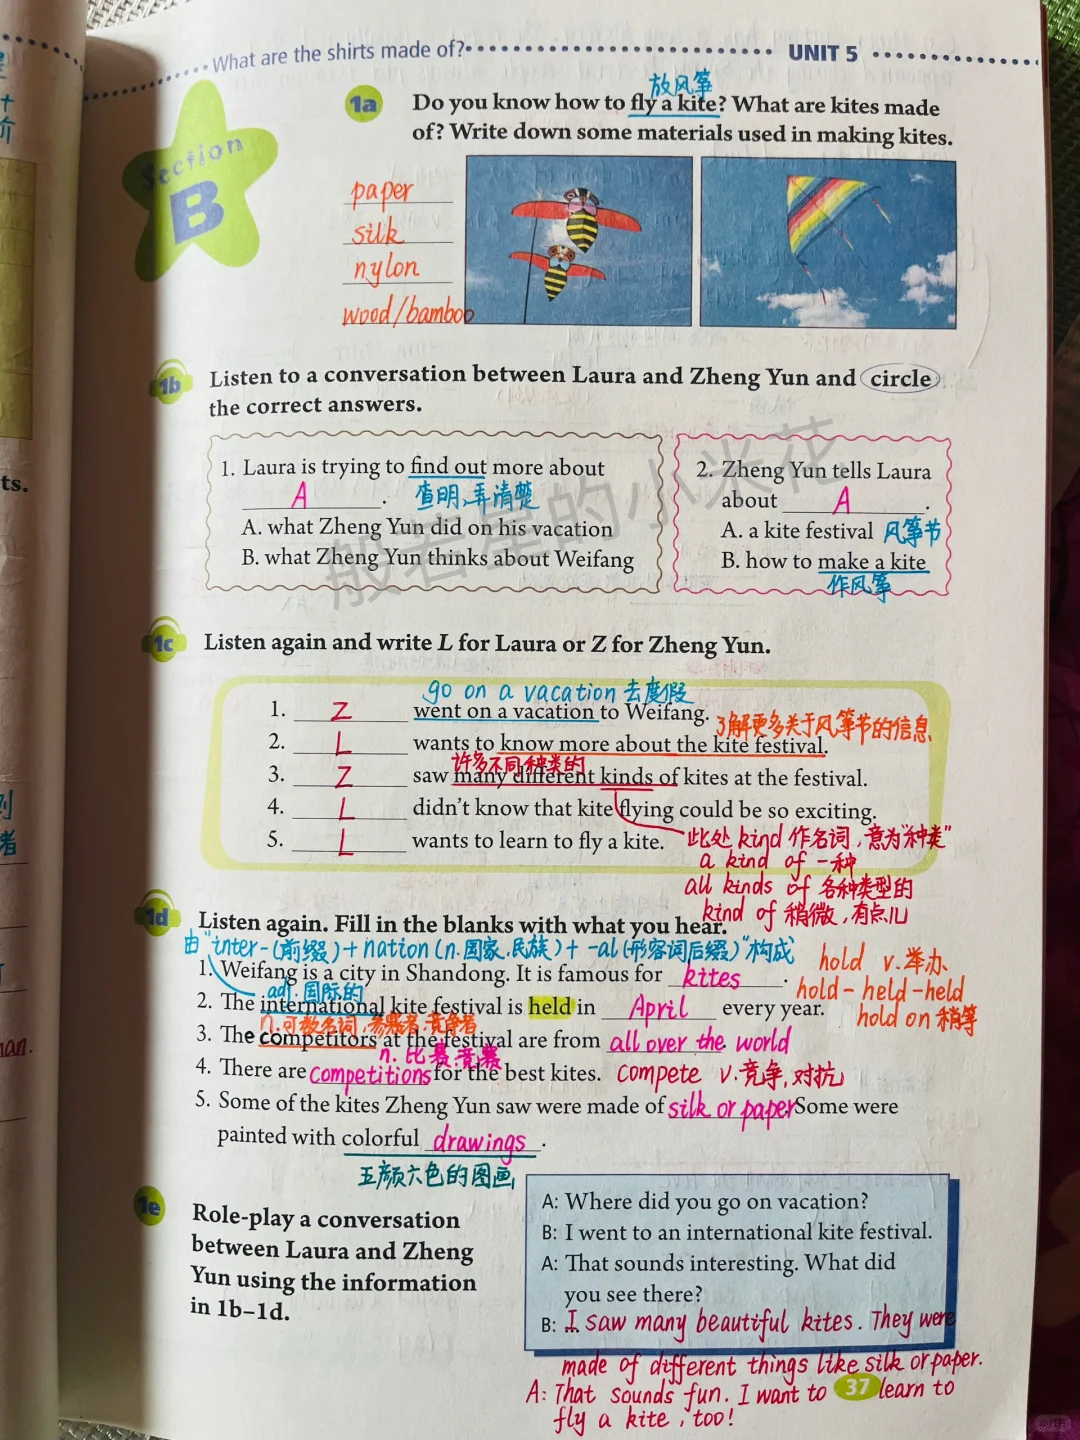 What are the shirts made of?
UNIT 5
Section
B
1a
放风筝
Do you know how to fly a kite? What are kites made
of? Write down some materials used in making kites.
paper
silk
nylon
wood/bamboo
1b
Listen to a conversation between Laura and Zheng Yun and circle
the correct answers.
1. Laura is trying to find out more about
A.
查明,弄清楚
A. what Zheng Yun did on his vacation
B. what Zheng Yun thinks about Weifang
2. Zheng Yun tells Laura
about A.
A. a kite festival 风筝节
B. how to make a kite
作风筝
般若星的小米花
1c
Listen again and write L for Laura or Z for Zheng Yun.
go on a vacation 去度假
1. Z went on a vacation to Weifang.
了解更多关于风筝节的信息
2. L wants to know more about the kite festival.
许多不同种类的
3. Z saw many different kinds of kites at the festival.
4. L didn't know that kite flying could be so exciting.
5. L wants to learn to fly a kite.
此处 kind 作名词,意为"种类"
a kind of 一种
all kinds of 各种类型的
kind of 稍微,有点儿
1d
Listen again. Fill in the blanks with what you hear.
由"inter-(前缀)+nation(n.国家,民族)+-al(形容词后缀)"构成
1. Weifang is a city in Shandong. It is famous for kites.
hold v.举办
hold-held-held
hold on 稍等
adj.国际的
2. The international kite festival is held in April every year.
n.可数名词,参赛者,竞争者
3. The competitors at the festival are from all over the world
n.比赛,竞赛
4. There are competitions for the best kites. compete v.竞争,对抗
5. Some of the kites Zheng Yun saw were made of silk or paper Some were
painted with colorful drawings.
五颜六色的图画
1e
Role-play a conversation
between Laura and Zheng
Yun using the information
in 1b–1d.
A: Where did you go on vacation?
B: I went to an international kite festival.
A: That sounds interesting. What did
you see there?
B: I saw many beautiful kites. They were
made of different things like silk or paper.
A: That sounds fun. I want to learn to
fly a kite, too!
37